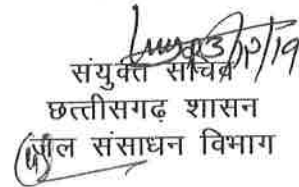 3/12/19
संयुक्त सचिव
छत्तीसगढ़ शासन
जल संसाधन विभाग